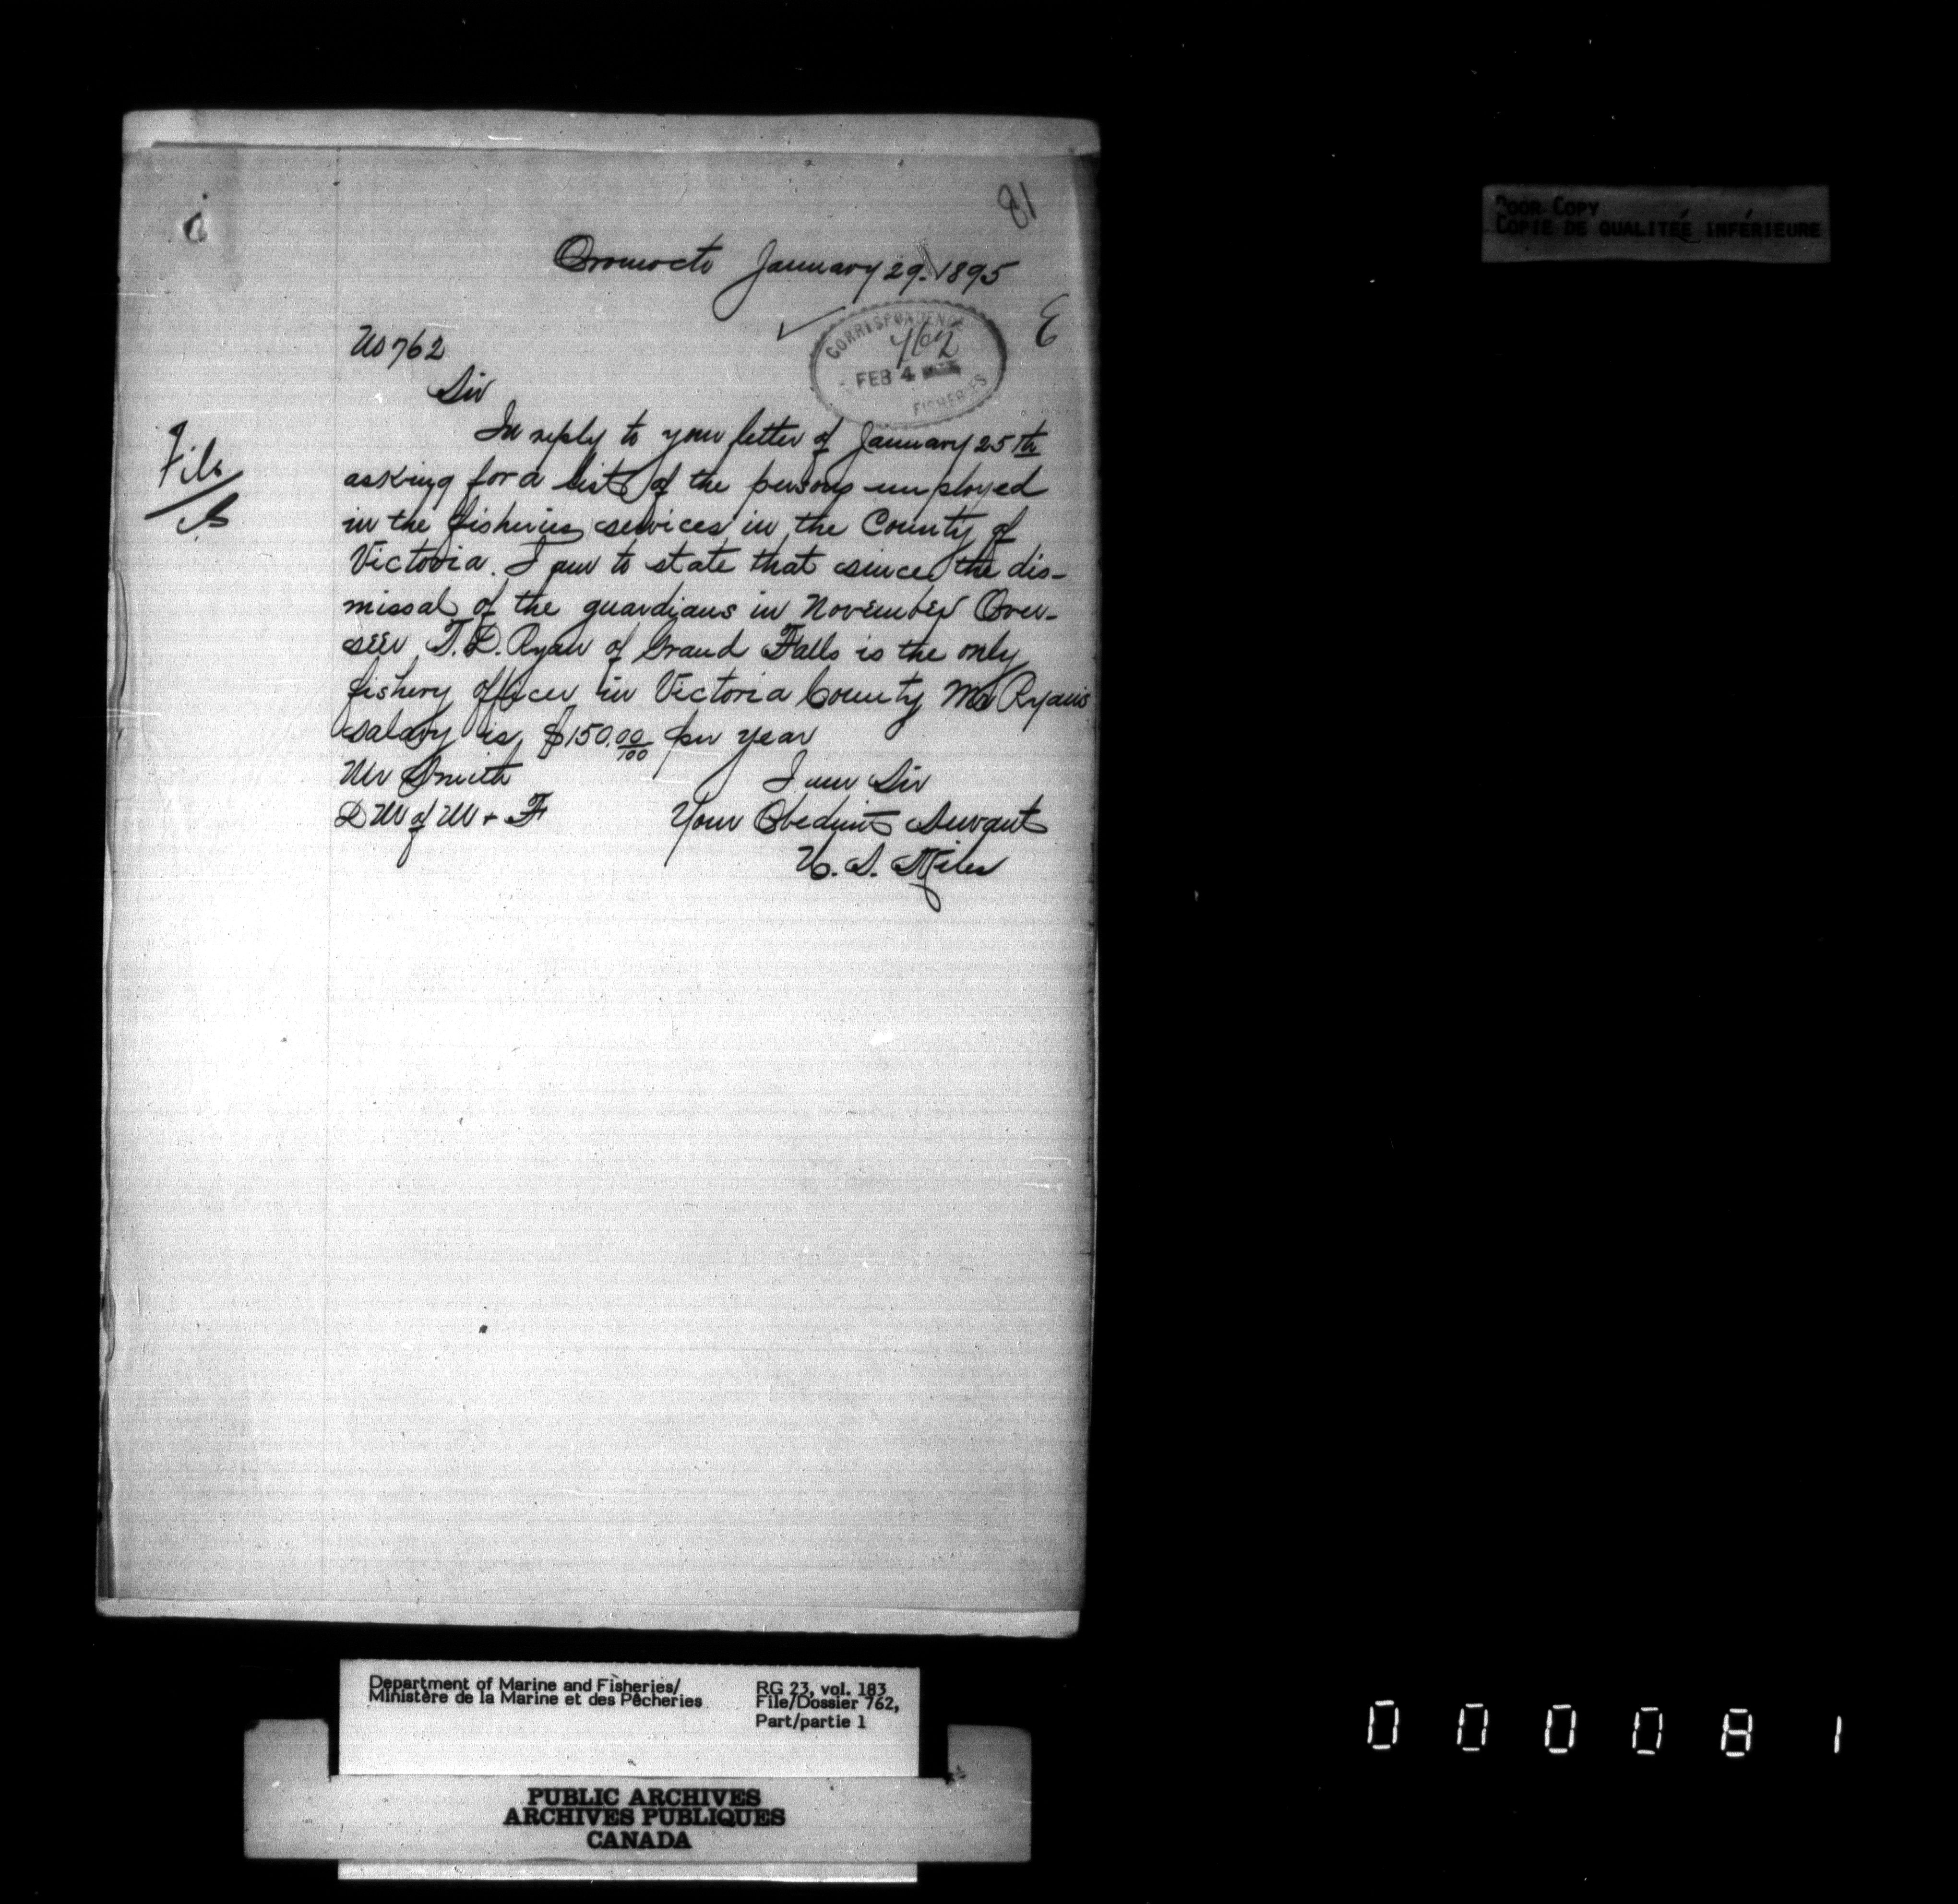 81
Oromocto January 29. 1895
No 762
E
CORRESPONDENCE
762
FEB 4
FISHERIES
Sir
In reply to your letter of January 25th
asking for a list of the persons employed
in the fisheries services in the County of
Victoria. I am to state that since the dis-
missal of the guardians in November Over-
seer T. D. Ryan of Grand Falls is the only
fishery officer in Victoria County Mr Ryan's
salary is $150.00/100 per year
File
Mr Smith
D M of M + F
I am Sir
Your Obedient Servant
H. S. Miles
POOR COPY
COPIE DE QUALITEÉ INFÉRIEURE
Department of Marine and Fisheries/
Ministère de la Marine et des Pêcheries
RG 23, vol. 183
File/Dossier 762,
Part/partie 1
PUBLIC ARCHIVES
ARCHIVES PUBLIQUES
CANADA
000081